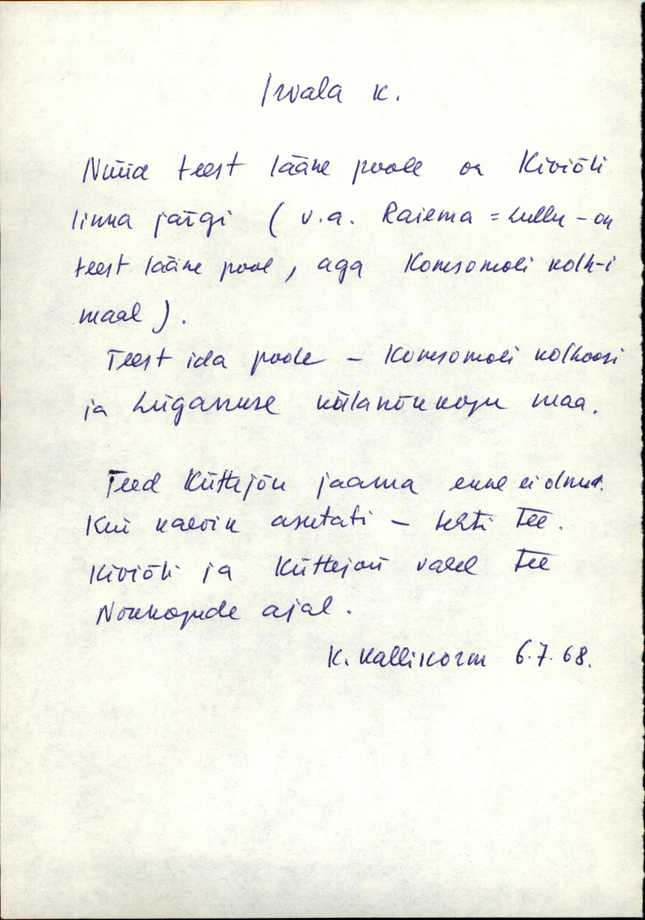 Irvala k.
Nüüd teest lääne poole on Kiviõli
linna järgi (v.a. Raiema = Lullu - on
teest lääne pool, aga Komsomoli kolh-i
maal).
Teest ida poole - Komsomoli kolhoosi
ja Lüganuse külanõukogu maa.
Teed Küttejõu jaama enne ei olnud.
Kui kaevik asutati - tehti tee.
Kiviõli ja Küttejõu vahel tee
Nõukogude ajal.
K. Kallikorm 6.7.68.